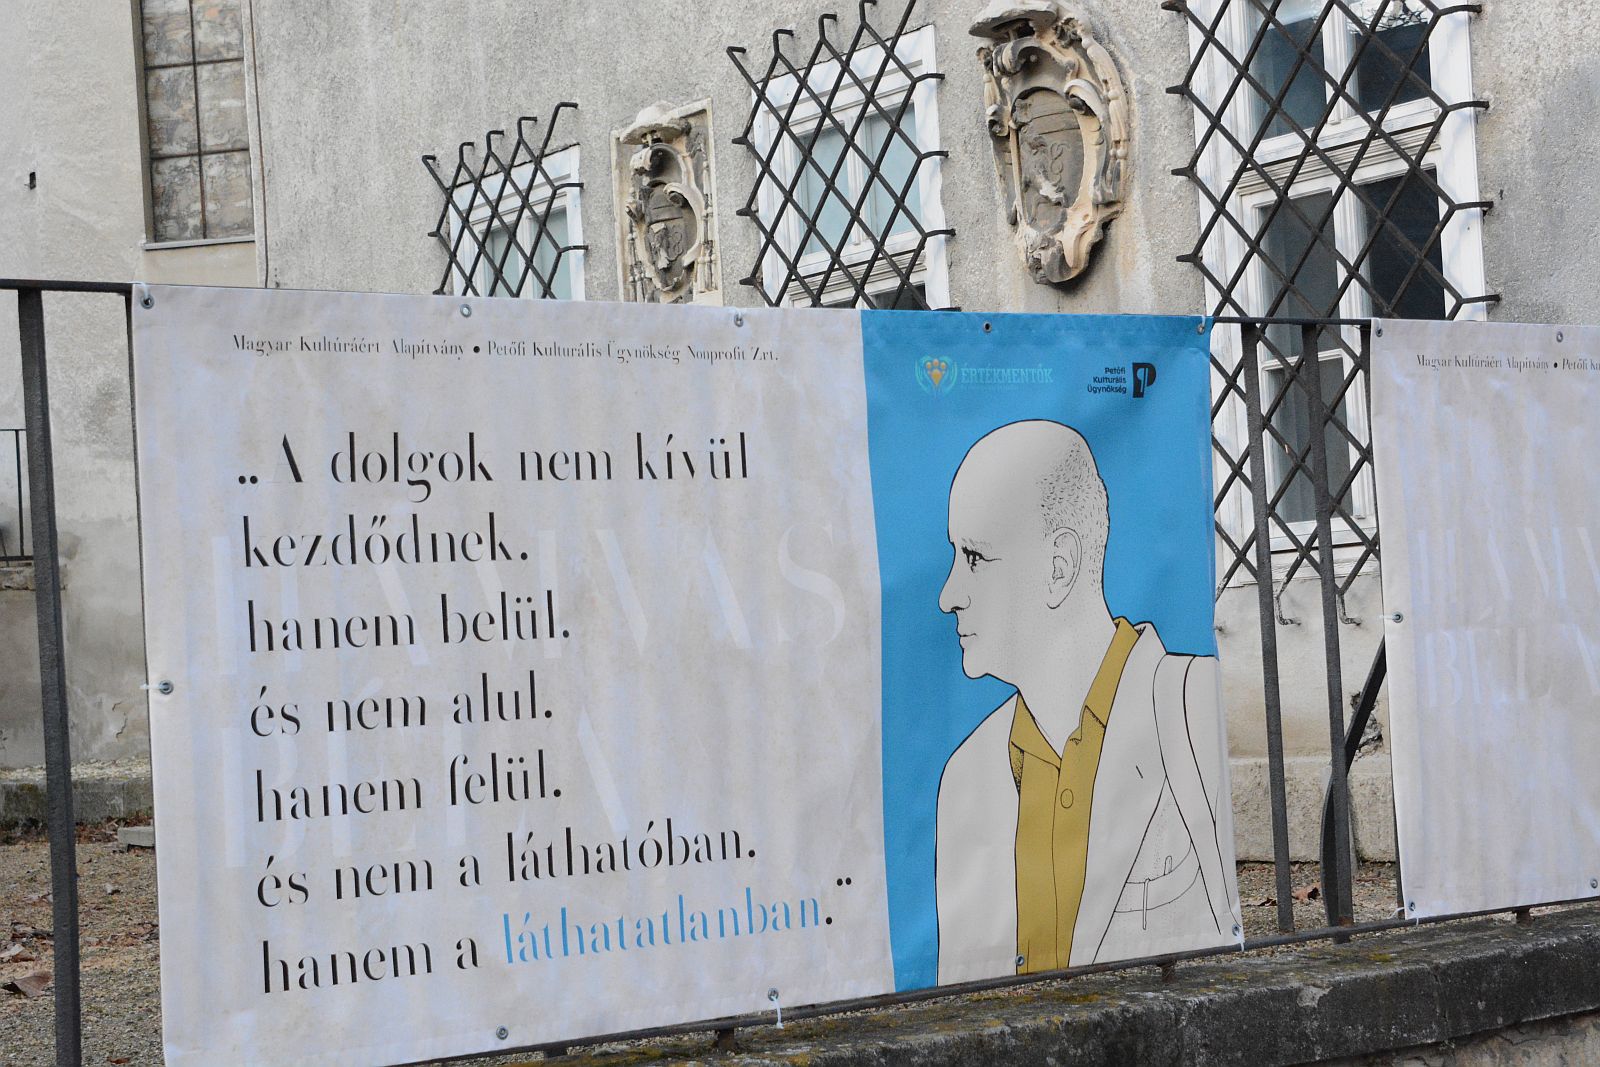 Magyar Kultúráért Alapítvány • Petőfi Kulturális Ügynökség Nonprofit Zrt.
ÉRTÉKMENTŐK
Petőfi
Kulturális
Ügynökség
P
„A dolgok nem kívül
kezdődnek.
hanem belül.
és nem alul.
hanem felül.
és nem a láthatóban.
hanem a láthatatlanban."
HAMVAS
BÉLA
Magyar Kultúráért Alapítvány • Petőfi
HAMV
BÉLA